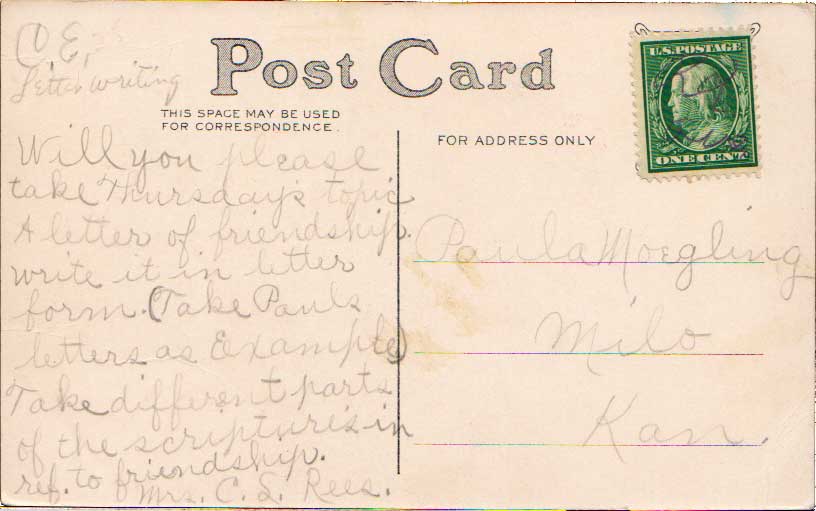 C.E.
Letter writing
Post Card
THIS SPACE MAY BE USED
FOR CORRESPONDENCE.
FOR ADDRESS ONLY
U.S. POSTAGE
ONE CENT
Will you please
take Thursday's topic
A letter of friendship.
write it in letter
form. (Take Pauls
letters as Example)
Take different parts
of the scriptures in
ref. to friendship.
Mrs. C. S. Rees.
Paula Moegling
Milo
Kan.